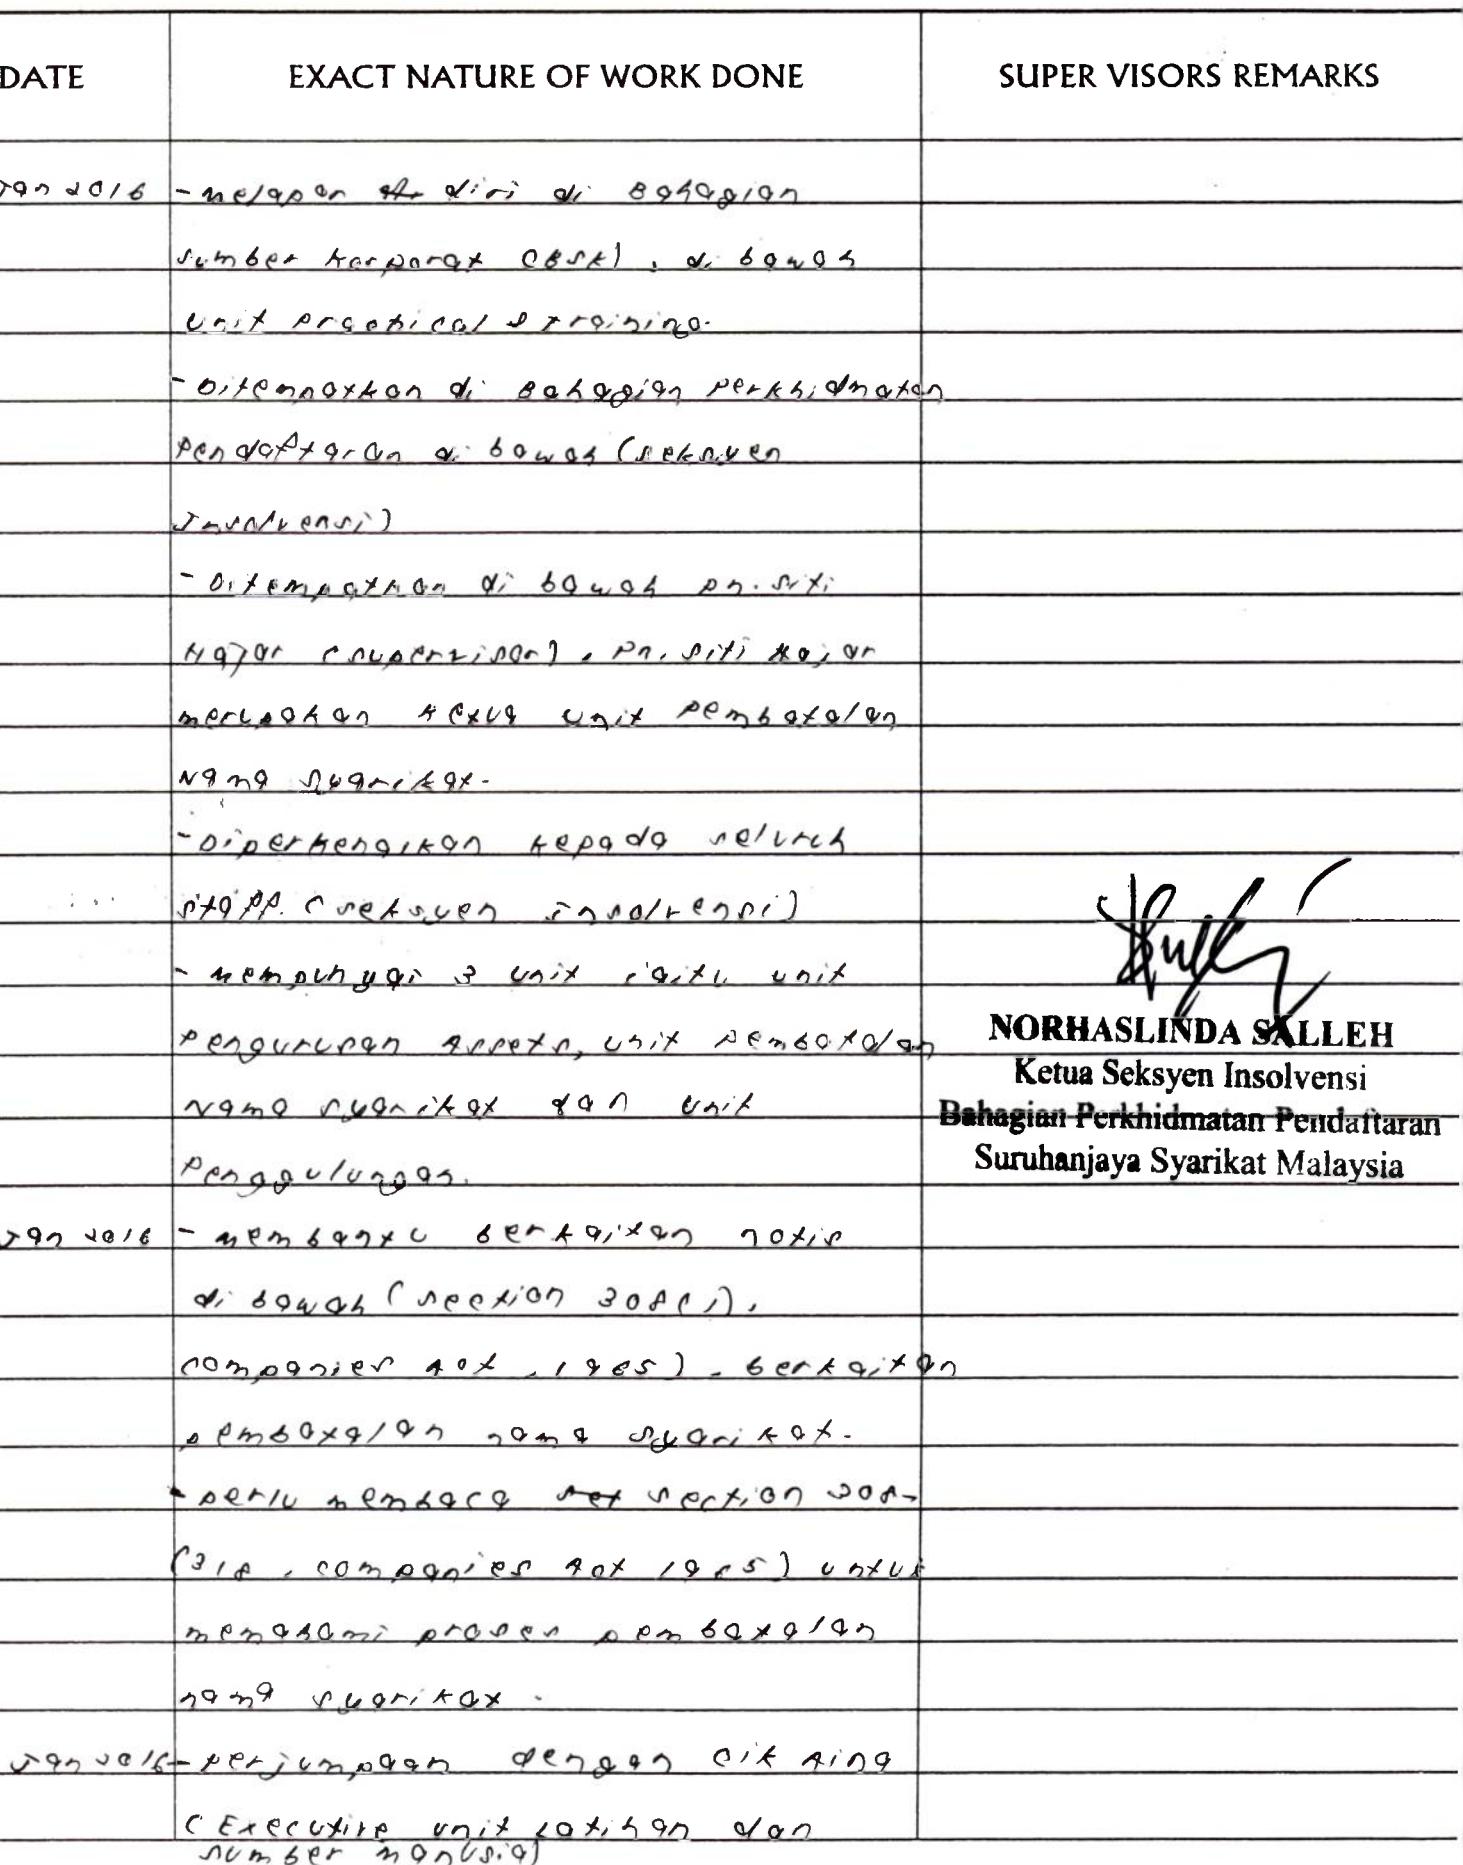 DATE EXACT NATURE OF WORK DONE SUPER VISORS REMARKS
Jan 2016 - melapor diri di Bahagian
sumber korporat (BSK), di bawah
unit practical training.
- Ditempatkan di Bahagian Perkhidmatan
Pendaftaran di bawah (seksyen
Insolvensi)
- Ditempatkan di bawah pn. siti
Hajar (supervisor). Pn. siti Hajar
merupakan ketua unit pembatalan
Nama syarikat.
- Diperkenalkan kepada seluruh
staff. (seksyen insolvensi)
- Mempunyai 3 unit iaitu unit
Pengurusan Assets, unit pembatalan
Nama syarikat dan unit
Penggulungan.
NORHASLINDA SALLEH
Ketua Seksyen Insolvensi
Bahagian Perkhidmatan Pendaftaran
Suruhanjaya Syarikat Malaysia
Jan 2016 - Membantu berkaitan notis
di bawah (section 308(1),
companies Act, 1965). berkaitan
pembatalan nama syarikat.
- perlu membaca section 308-
(318, companies Act 1965) untuk
memahami proses pembatalan
nama syarikat.
Jan 2016 - Perjumpaan dengan cik Aina
(Executive unit Latihan dan
sumber manusia)